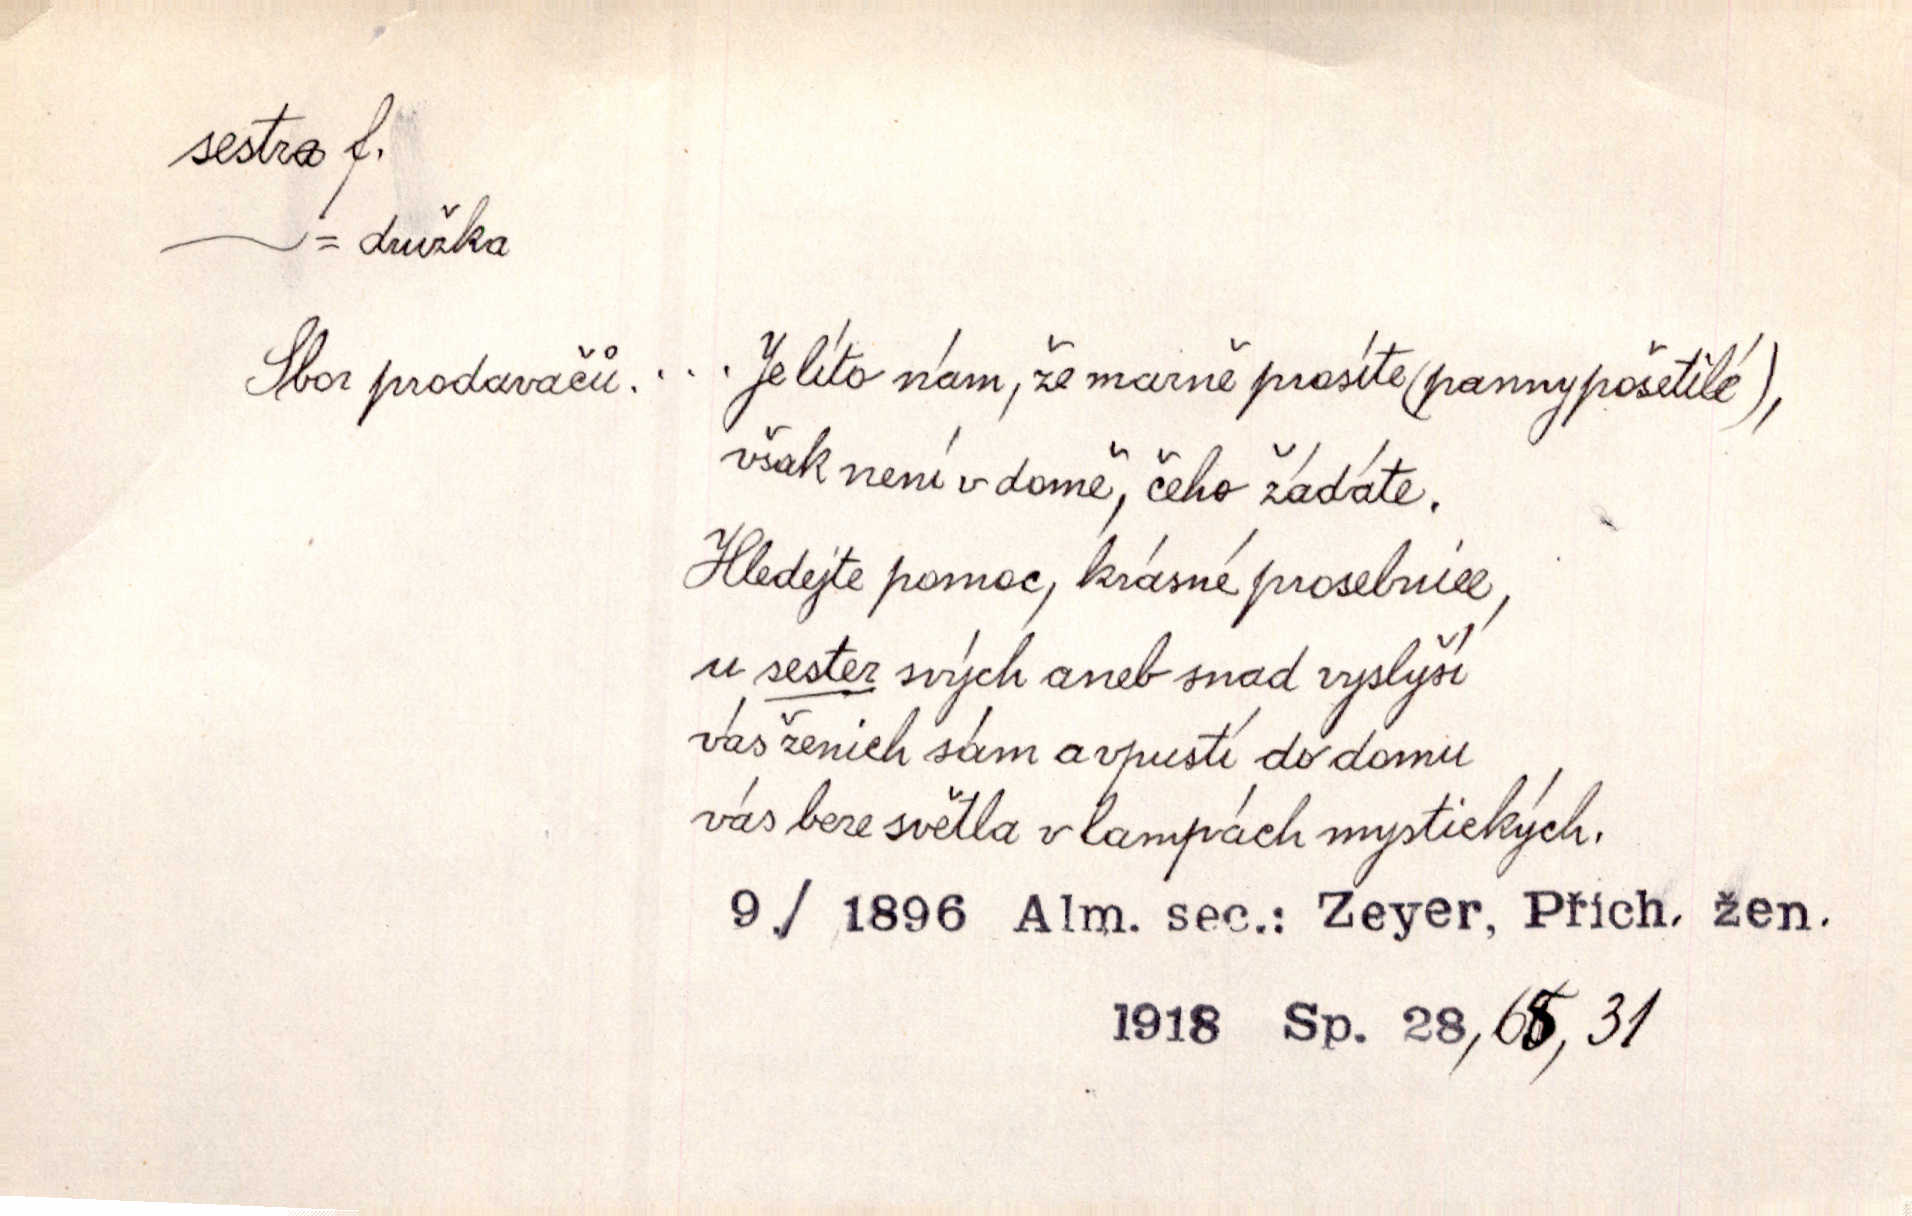 sestra f.
— = družka
Sbor prodavačů. ... Je líto nám, že marně prosíte (panny pošetilé),
však není v domě, čeho žádáte.
Hledejte pomoc, krásné prosebnice,
u sester svých aneb snad vyslyší
vás ženich sám a vpustí do domu
vás beze světla v lampách mystických.
9./ 1896 Alm. sec.: Zeyer, Přích. žen.
1918 Sp. 28, 31